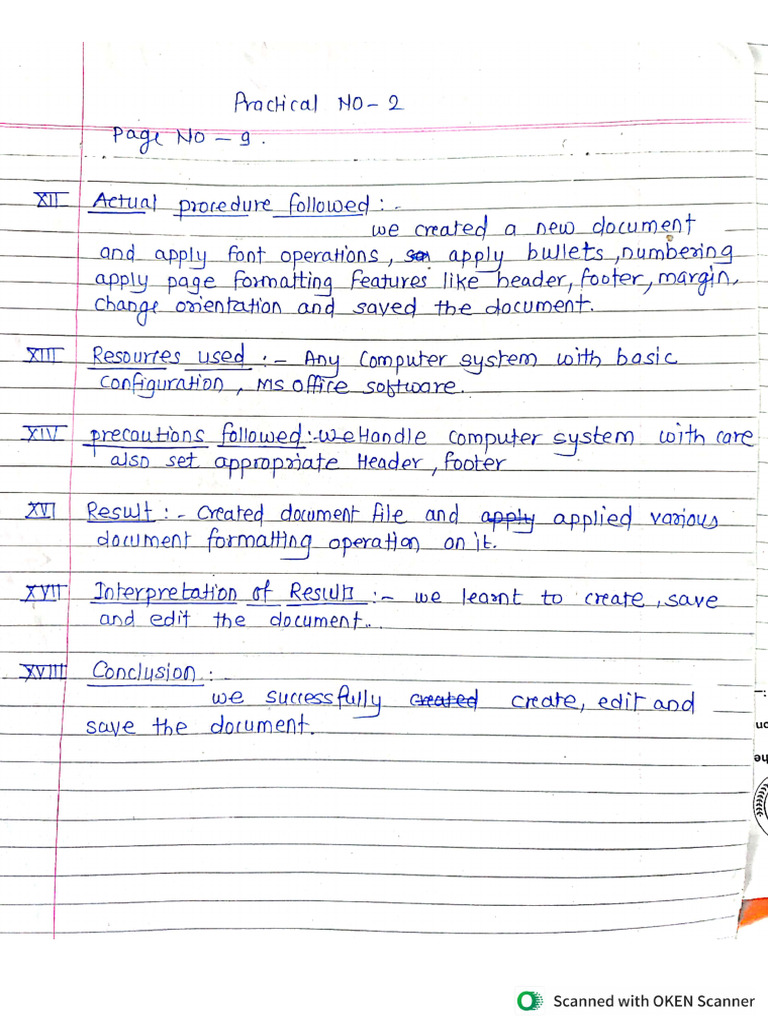 Practical NO - 2
Page NO - 9.
XII Actual procedure followed :-
we created a new document
and apply font operations, apply bullets, numbering
apply page formatting features like header, footer, margin,
change orientation and saved the document.
XIII Resources used :- Any computer system with basic
configuration, MS office software.
XIV precautions followed :- we Handle computer system with care
also set appropriate Header, footer
XVI Result :- Created document file and apply applied various
document formatting operation on it.
XVII Interpretation of Result :- we learnt to create, save
and edit the document..
XVIII Conclusion :-
we successfully created create, edit and
save the document.
Scanned with OKEN Scanner